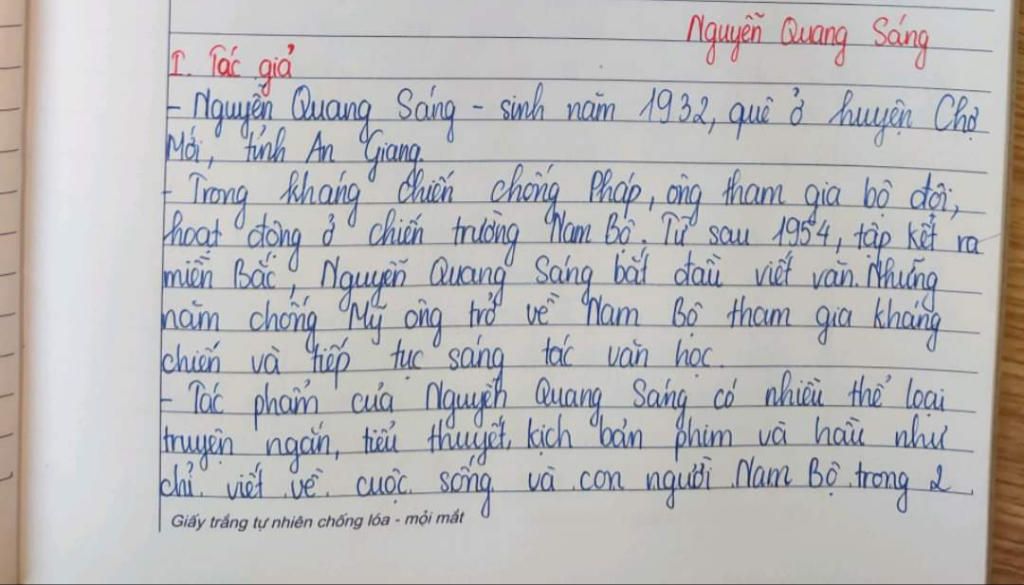 Nguyễn Quang Sáng
I. Tác giả
- Nguyễn Quang Sáng - sinh năm 1932, quê ở huyện Chợ
Mới, tỉnh An Giang.
- Trong kháng chiến chống Pháp, ông tham gia bộ đội,
hoạt động ở chiến trường Nam Bộ. Từ sau 1954, tập kết ra
miền Bắc, Nguyễn Quang Sáng bắt đầu viết văn. Những
năm chống Mỹ ông trở về Nam Bộ tham gia kháng
chiến và tiếp tục sáng tác văn học.
- Tác phẩm của Nguyễn Quang Sáng có nhiều thể loại
truyện ngắn, tiểu thuyết, kịch bản phim và hầu như
chỉ viết về cuộc sống và con người Nam Bộ trong 2
Giấy trắng tự nhiên chống lóa - mỏi mắt